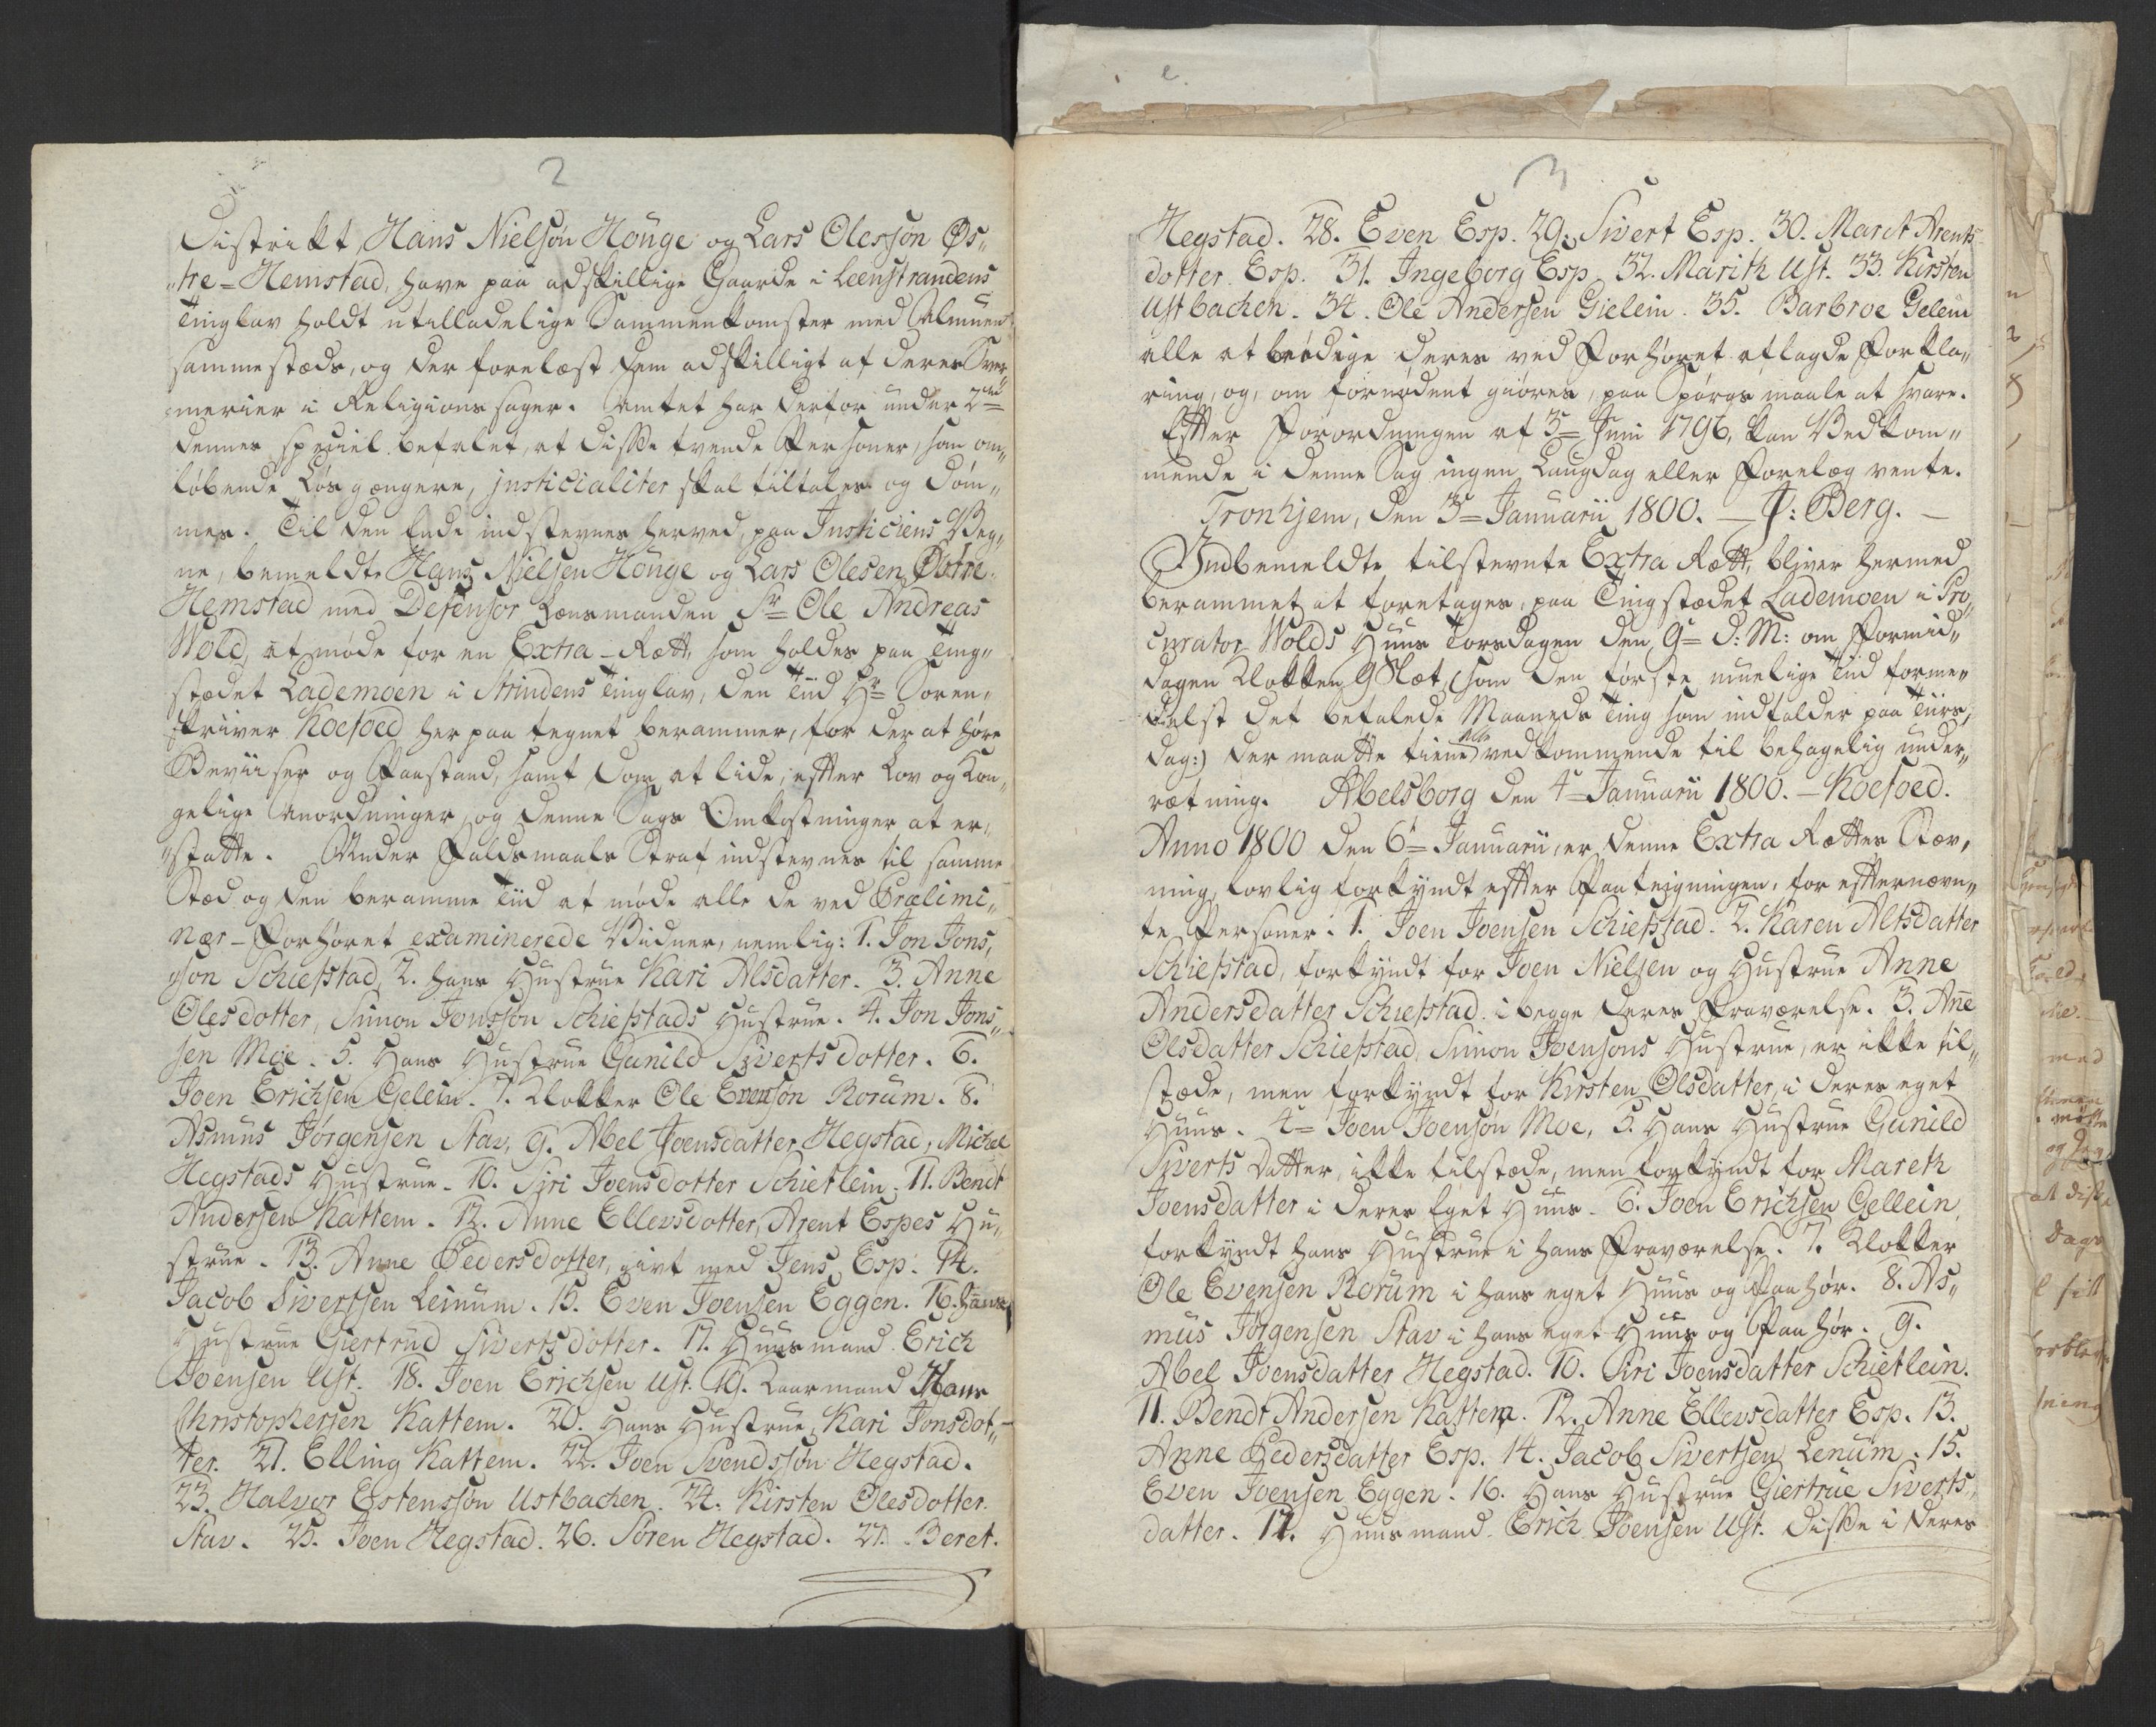 2
Distrikt, Hans Nielsøn Houge og Lars Olessøn Øs„
„tre-Hemstad, have paa adskillige Gaarde i Leenstrandens
Tinglav holdt utilladelige Sammenkomster med Almuen
sammestæds, og der forelæst dem adskilligt af deres Sver„
merier i Religions sager. Amtet har derfor under 2den
dennes speciel befalet, at disse tvende Personer, som om„
løbende Løsgængere, justicialiter skal tiltales og døm„
mes. Til den Ende indstevnes herved, paa Justiciens Veg„
ne, bemeldte Hans Nielsen Houge og Lars Olesen Østre-
Hemstad med Defensor Lænsmanden Sr Ole Andreas
Wold, at møde for en Extra-Rætt, som holdes paa Ting„
stædet Lademoen i Strindens Tinglav, den Tiid Hr Soren„
skriver Koefoed her paa tegnet berammer, for der at høre
Beviiser og Paastand, samt Dom at lide, efter Lov og Kon„
gelige Anordninger, og denne Sags Omkostninger at er„
„statte. Under Faldsmaals Straf indstevnes til samme
Stæd og den beramme Tiid at møde alle de ved Prælimi„
nær-Forhøret examinerede Vidner, nemlig: 1. Jon Jons„
søn Schiefstad, 2. hans Hustrue Kari Alsdatter. 3. Anne
Olesdotter, Simon Jonssøn Schiefstads Hustrue. 4. Jon Jons„
sen Moe. 5. Hans Hustrue Gunild Siverts dotter. 6.
Joen Erichsen Gelein. 7. Klokker Ole Evensøn Rorum. 8.
Asmus Jørgensen Stav, 9. Abel Joensdatter Hegstad, Michel
Hegstads Hustrue. 10. Siri Joensdotter Schietlein. 11. Bendt
Andersen Kattem. 12. Anne Ellevsdotter, Arent Espes Hu„
strue. 13. Anne Pedersdotter, givt med Jens Esp. 14.
Jacob Sivertsen Leinum. 15. Even Joensen Eggen. 16. Hans
Hustrue Giertrud Sivertsdotter. 17. Huusmand Erich
Joensen Ust. 18. Joen Erichsen Ust. 19. Kaarmand Hans
Christophersen Kattem. 20. Hans Hustrue, Kari Jonsdot„
ter. 21. Elling Kattem. 22. Joen Svendssøn Hegstad.
23. Halvor Estenssøn Ustbachen. 24. Kirsten Olesdotter
Stav. 25. Joen Hegstad. 26. Soren Hegstad. 27. Beret.
3
Hegstad. 28. Even Esp. 29. Sivert Esp. 30. Maret Arents
dotter Esp. 31. Ingeborg Esp. 32. Marith Ust. 33. Kirsten
Ustbachen. 34. Ole Andersen Gielein. 35. Barbroe Gelein
alle at beedige deres ved Forhøret aflagde Forkla„
ring, og, om fornødent giøres, paa Spørgsmaale at svare.
Efter Forordningen af 3 Juni 1796, kan Vedkom„
mende i denne Sag ingen Laugdag eller Forelæg vente.
Tronhjem, den 3 Januarii 1800. — J: Berg. —
Indbemeldte tilstevnte Extra Rætt, bliver hermed
berammet at foretages, paa Tingstædet Lademoen i Pro„
curator Wolds Huus Torsdagen den 9 d: M: om Formid„
dagen Klokken 9 Slæt, (som den første muelige Tiid forme„
delst det befalede Maaneds Ting som indfalder paa Tiirs„
dag:) der maatte tiene alle vedkommende til behagelig under„
rætning. Abelsborg den 4 Januarii 1800. — Koefoed.
Anno 1800 den 6 Januarii, er denne Extra Rættes Stæv„
ning, lovlig forkyndt efter Paateigningen, for efternævn„
te Personer: 1. Joen Joensen Schiefstad. 2. Karen Alsdatter
Schiefstad, forkyndt for Joen Nielsen og Hustrue Anne
Andersdatter Schiefstad i begge deres Fraværelse. 3. Anne
Olsdatter Schiefstad, Simon Joensons Hustrue, er ikke til„
stæde, men forkyndt for Kirsten Olsdatter, i deres eget
Huus. 4 Joen Joensøn Moe, 5. Hans Hustrue Gunild
Siverts Datter, ikke tilstæde, men forkyndt for Mareth
Joensdatter i deres Eget Huus. 6. Joen Erichsen Gellein
forkyndt hans Hustrue i hans Fraværelse. 7. Klokker
Ole Evensen Rorum i hans eget Huus og Paahør. 8. As„
mus Jørgensen Stav i hans eget Huus og Paahør. 9.
Abel Joensdatter Hegstad. 10. Siri Joensdatter Schietlein.
11. Bendt Andersen Kattem. 12. Anne Ellevsdatter Esp. 13.
Anne Pedersdatter Esp. 14. Jacob Sivertsen Lenum. 15.
Even Joensen Eggen. 16. Hans Hustrue Giertrue Siverts„
datter. 17. Huusmand Erich Joensen Ust. Disse i deres